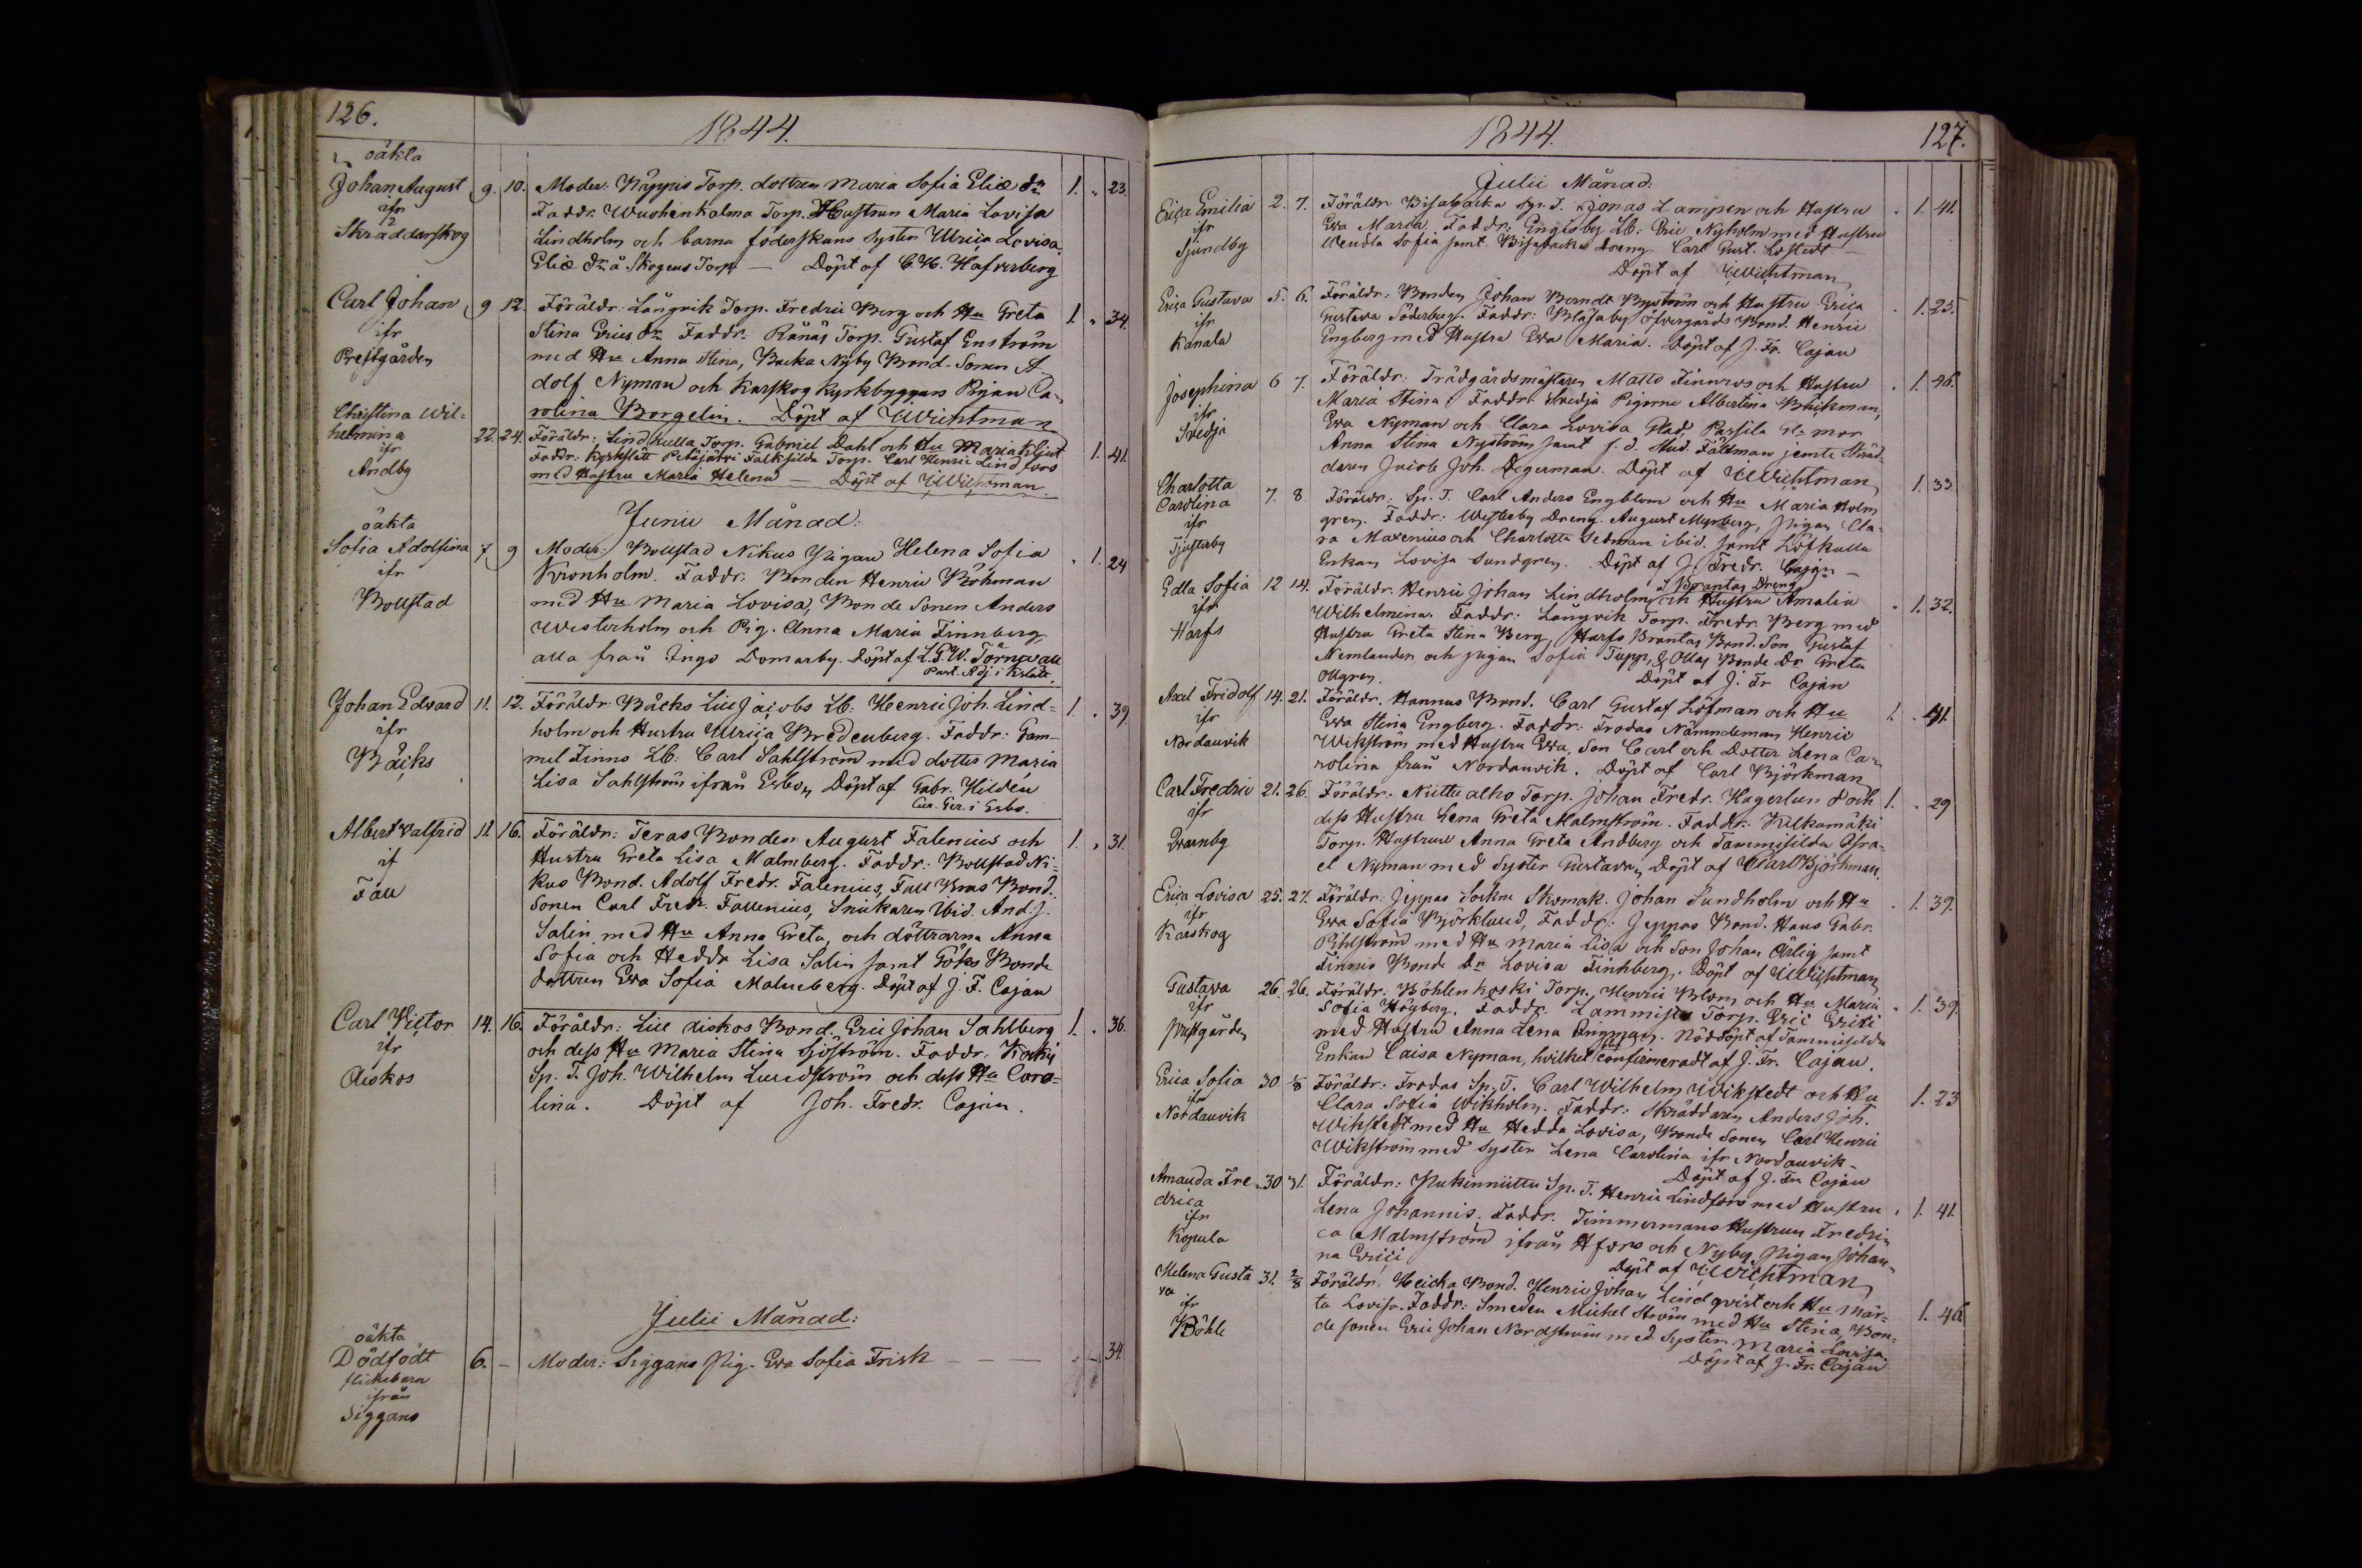 126.
1844.
oäkta
Johan August 9. 10. Moder: Näppis Torp. dottren Maria Sofia Eliæ Dr 1. " 23.
ifr Faddr. Wuohenkalma Torp. Hustrun Maria Lovisa
Skräddarskog Lindholm och barna föderskans Syster Ulrica Lovisa
Eliæ Dr å Skogens Torp — Döpt af C. H. Hafverberg
Carl Johan 9 12. Föräldr: Långvik Torp. Fredric Berg och Hu Greta 1. " 34.
ifr Stina Erics Dr. Faddr. Rånäs Torp. Gustaf Enström
Prestgården med Hu Anna Stina, Backa Nyby Bond. Sonen A
dolf Nyman och Karskog Kyrkbyggars Pigan Ca-
rolina Borgelin. Döpt af Wichtman
Christina Wil-
helmina 22. 24. Föräldr: Lindkulla Torp. Gabriel Dahl och Hu Maria Kljut 1. 41.
ifr Faddr: Kyrkslätt Petäjärvi Falksilda Torp. Carl Henric Lindfors
Andby med Hustru Maria Helena — Döpt af Wichtman.
Junii Månad:
oäkta
Sofia Adolfina 7 9 Moder: Bollstad Nikus Pigan Helena Sofia . 1. 24
ifr Kronholm. Faddr: Bonden Henric Böhman
Bollstad med Hu Maria Lovisa, Bonde Sonen Anders
Westerholm och Pig. Anna Maria Finnberg
alla från Ingo Domarby. Döpt af L. G. W. Törnwall
Past. Adj. i Kslätt.
Johan Edvard 11. 12. Föräldr. Bäcks Lill Jacobs Lb: Henric Joh. Lind- 1. . 39
ifr holm och Hustru Ulrica Bredenberg. Faddr: Gam-
Bäcks mel Finns Lb: Carl Sahlström med dotter Maria
Lisa Sahlström ifrån Esbo, Döpt af Gabr. Hildén
Cur. Ger. i Esbo.
Albert Valfrid 11. 16. Föräldr: Teras Bonden August Falenius och 1. " 31.
if Hustru Greta Lisa Malmberg. Faddr: Bollstad Ni-
Fall kus Bond. Adolf Fredr. Falenius, Fall Bras Bond.
Sonen Carl Fredr. Fallenius, Snickaren Ibid. And. J.
Salin med Hu Anna Greta, och döttrarna Anna
Sofia och Hedda Lisa Salin samt Göks Bonde
dottren Eva Sofia Malmberg. Döpt af J. F. Cajan
Carl Victor 14. 16. Föräldr: Lill Aiskos Bond. Eric Johan Sahlberg 1. . 36.
ifr och dess Hu Maria Stina Sjöström. Faddr: Kocki
Aiskos Sp. T. Joh. Wilhelm Lundström och dess Hu Caro-
lina. Döpt af Joh. Fredr. Cajan.
Julii Månad:
oäkta
Dödfödt 6. — Moder: Siggans Pig. Eva Sofia Frisk — — — 34.
flickebarn
ifrån
Siggans
1844.
127.
Julii Månad:
Erica Emilia 2. 7. Föräldr. Bisabacka Sp. T. Jonas Lampen och Hustru . 1. 41.
ifr Eva Maria. Faddr: Engisby Lb: Eric Nyholm med Hustru
Sjundby Wendla Sofia samt Bisabacka Dreng. Carl Gust. Löfstedt —
Döpt af Wichtman
Erica Gustava 5. 6. Föräldr: Bonden Johan Berndt Byström och Hustru Erica . 1. 25.
ifr Gustava Söderberg. Faddr: Blåsaby Öfvergårds Bond. Henric
Kanala Engberg med Hustru Eva Maria. Döpt af J. Fr. Cajan
Josephina 6 7. Föräldr: Trädgårdsmästaren Matts Finnros och Hustru . 1. 46.
ifr Maria Stina. Faddr: Svedja Pigorne Albertina Blickman,
Svedja Eva Nyman och Clara Lovisa Glad, Passila Gl mor
Anna Stina Nyström samt f. d. Stud. Fältman jemte Skräd-
daren Jacob Joh. Degerman. Döpt af Wichtman
Charlotta
Carolina 7. 8. Föräldr: Sp. T. Carl Anders Engblom och Hu Maria Holm 1. 33.
ifr gren. Faddr: Westerby Dreng. August Myrberg, Pigan Cla-
Tjusterby ra Maxenius och Charlotta Sedman ibid. samt Löfkulla
Enkan Lovisa Sundgren. Döpt af J. Fredr. Cajan —
Edla Sofia 12 14. Föräldr. Henric Johan Lindholm å Brantas Dreng och Hustru Amalia . 1. 32.
ifr Wilhelmina. Faddr: Långvik Torp. Fredr. Berg med
Harfs Hustru Greta Stina Berg, Harfs Brantas Bond. Son Gustaf
Nemlander och pigan Sofia Tupp, & Ollas Bonde Dr Greta
Ollgren. Döpt af J. Fr Cajan
Axel Fridolf 14. 21. Föräldr. Hannus Bond. Carl Gustaf Löfman och Hu 1. . 41.
ifr Eva Stina Engberg. Faddr: Frodas Nämndeman Henric
Nordanvik Wikström med Hustru Eva, Son Carl och Dotter Lena Ca-
rolina från Nordanvik. Döpt af Carl Björkman
Carl Fredric 21. 26. Föräldr. Niittu alho Torp. Johan Fredr. Hagerlund och 1. . 29
ifr dess Hustru Lena Greta Malmström. Faddr: Kilkamäki
Qvarnby Torp. Hustrun Anna Greta Andberg och Tammisilda Isra-
el Nyman med Syster Gustava, Döpt af Carl Björkman.
Erica Lovisa 25. 27. Föräldr: Jeppas Sockne Skomak. Johan Sundholm och Hu . 1. 39.
ifr Eva Sofia Björklund, Faddr: Jeppas Bond. Hans Gabr.
Karskog Pihlström med Hu Maria Lisa och Son Johan Ärlig samt
Finnis Bonde Dr Lovisa Finnberg. Döpt af Wichtman
Gustava 26. 26. Föräldr. Böhlen koski Torp. Henric Blom och Hu Maria . 1. 39.
ifr Sofia Högberg. Faddr. Lammista Torp. Eric Erici
Prestgården med Hustru Anna Lena Dingman. Nöddöpt af Tammisilda
Enkan Caisa Nyman, hvilket confirmeradt af J. Fr. Cajan.
Erica Sofia 30 1/8 Föräldr: Frodas Sp. T. Carl Wilhelm Wikstedt och Hu 1. 23
ifr Clara Sofia Wikholm. Faddr: Skräddaren Anders Joh.
Nordanvik Wikstedt med Hu Hedda Lovisa, Bonde Sonen Carl Henric
Wikström med Syster Lena Carolina ifr Nordanvik —
Döpt af J. Fr. Cajan
Amanda Fre- 30 31. Föräldr: Pukinniittu Sp. T. Henric Lindfors med Hustru . 1. 41.
drica Lena Johannis. Faddr. Timmermans Hustrun Fredri-
ifr ca Malmström ifrån Hfors och Nyby Pigan Johan-
Kopula na Erici Döpt af Wichtman
Helena Gusta 31. 2/8 Föräldr. Heicka Bond. Henric Johan Lindqvist och Hu Mär- 1. 46
va ta Lovisa. Faddr: Smeden Michel Ström med Hu Stina, Bon-
ifr de Sonen Eric Johan Nordström med Syster Maria Lovisa.
Böhle Döpt af J. Fr. Cajan